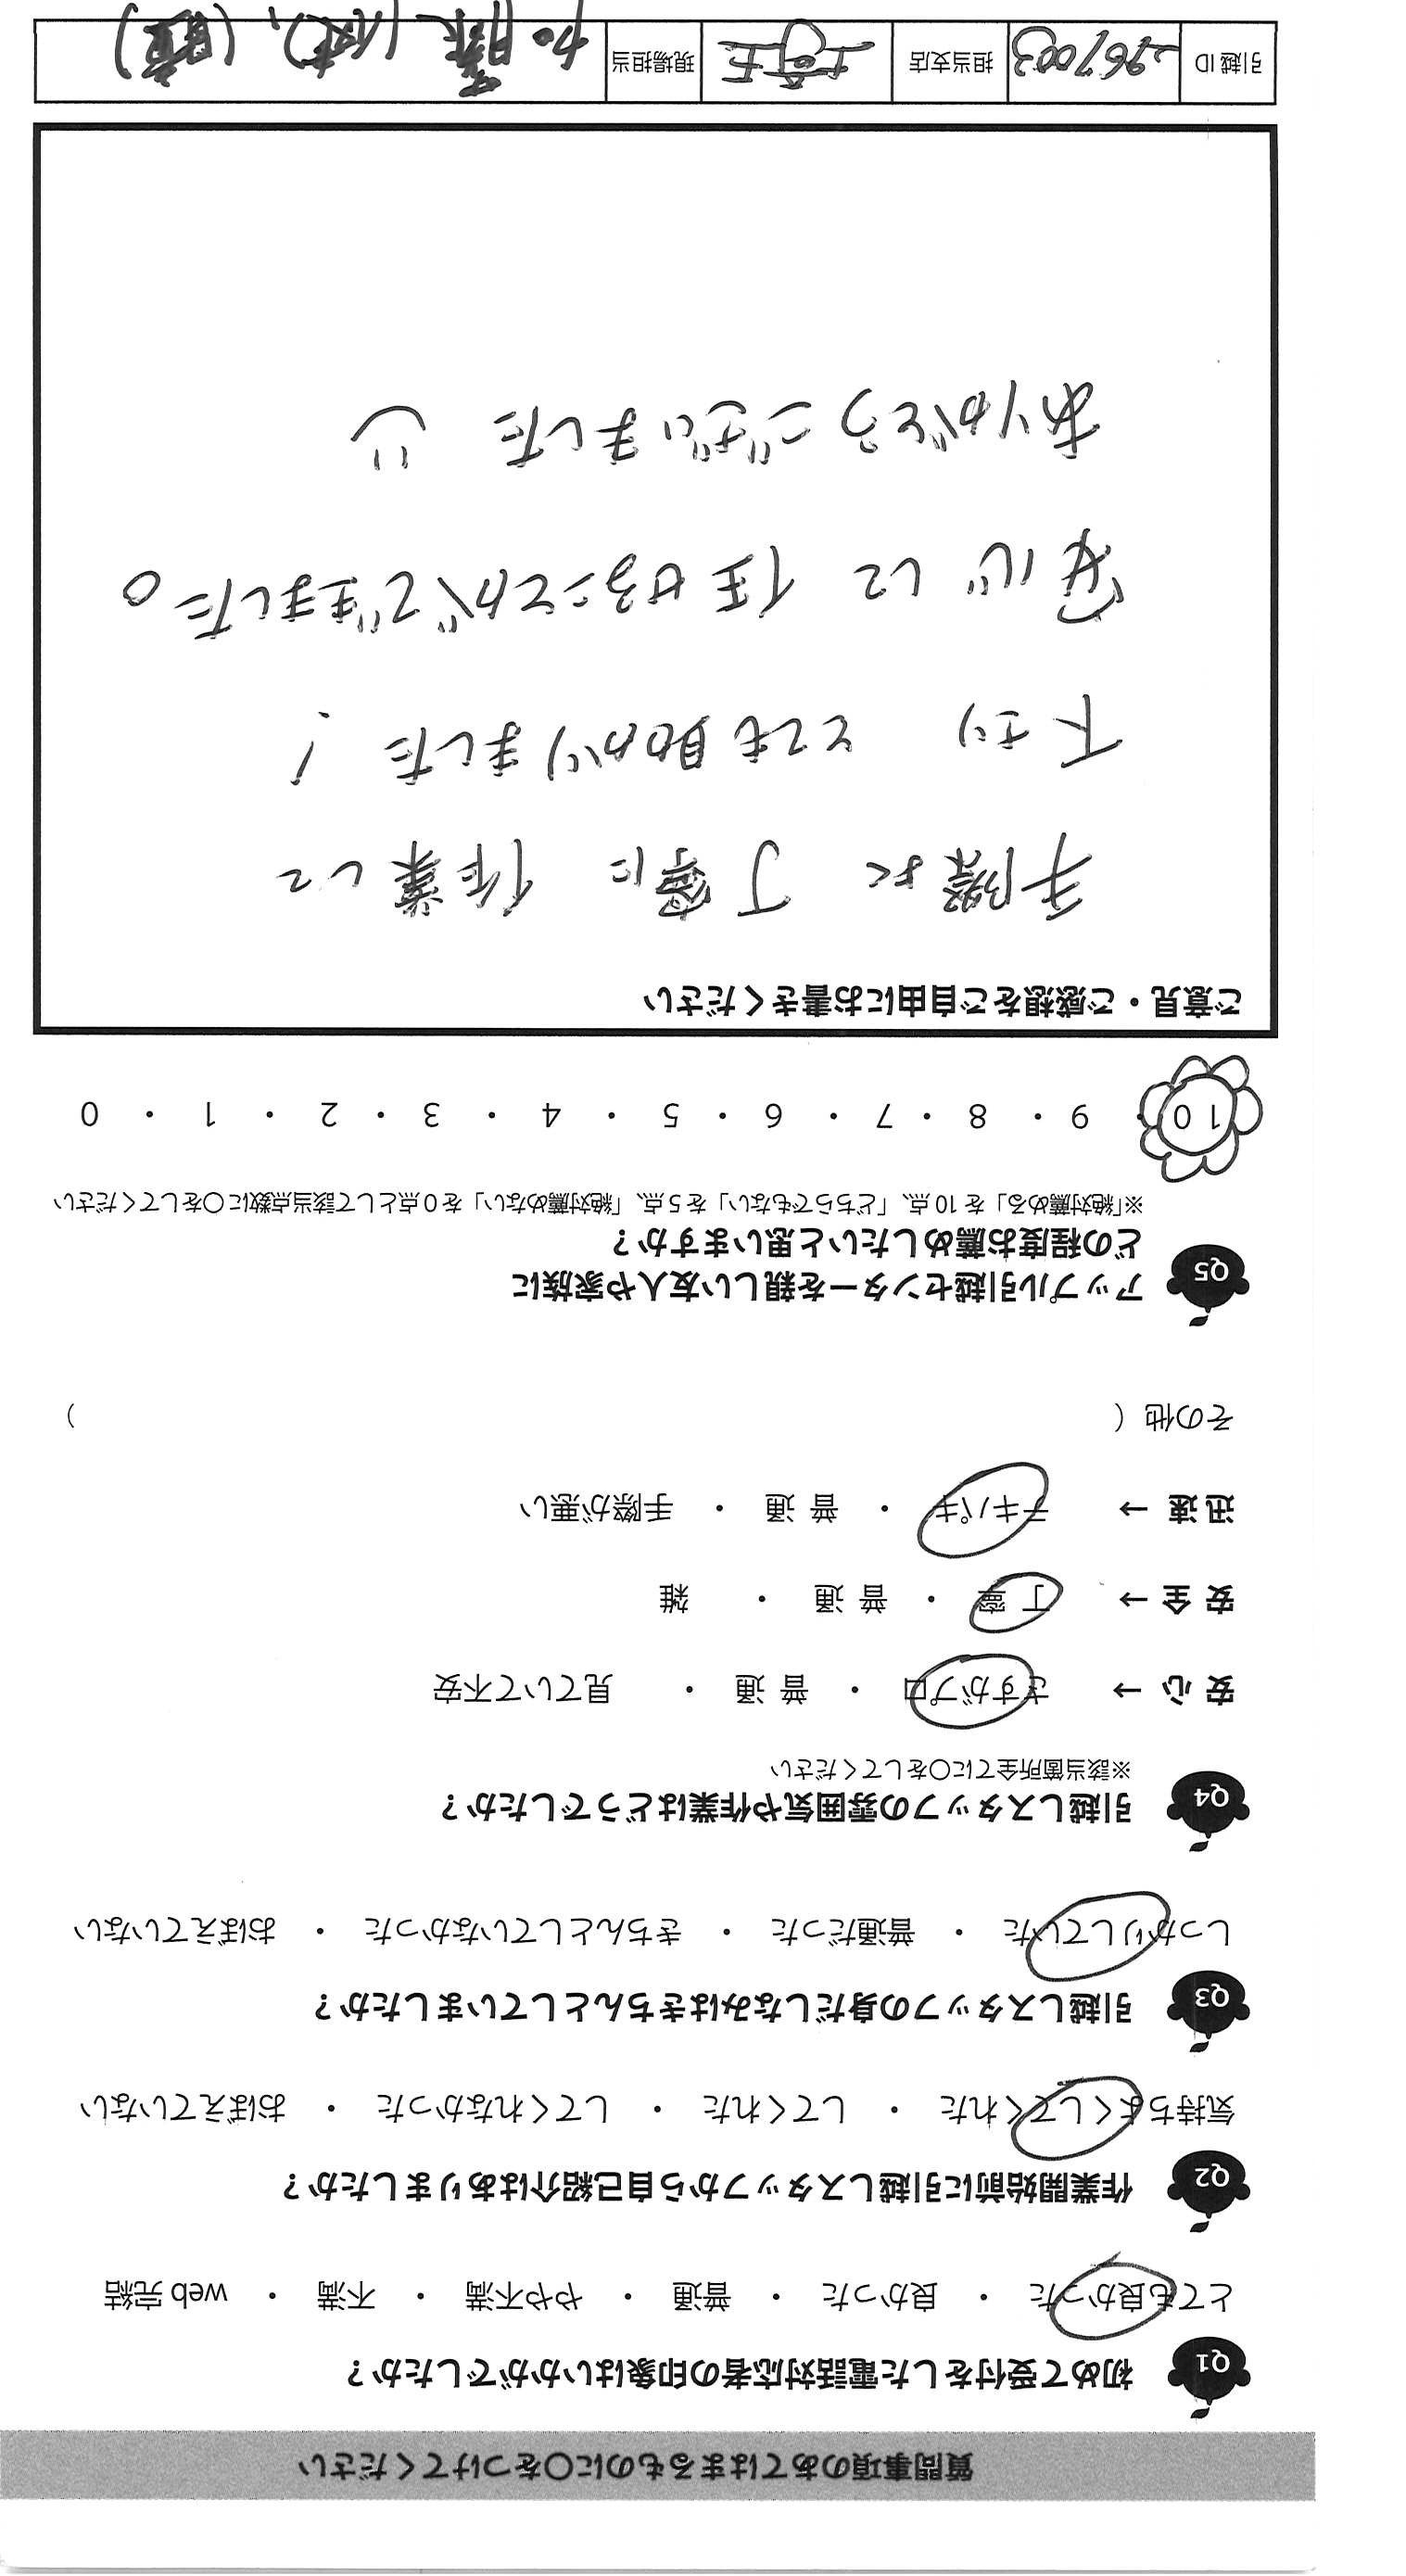 質問事項のあてはまるものに○をつけてください
Q1 初めて受付をした電話対応者の印象はいかがでしたか？
とても良かった ・ 良かった ・ 普通 ・ やや不満 ・ 不満 ・ web 完結
Q2 作業開始前に引越しスタッフから自己紹介はありましたか？
気持ちよくしてくれた ・ してくれた ・ してくれなかった ・ おぼえていない
Q3 引越しスタッフの身だしなみはきちんとしていましたか？
しっかりしていた ・ 普通だった ・ きちんとしていなかった ・ おぼえていない
Q4 引越しスタッフの雰囲気や作業はどうでしたか？
※該当箇所全てに○をしてください
安 心 → さすがプロ ・ 普 通 ・ 見ていて不安
安 全 → 丁 寧 ・ 普 通 ・ 雑
迅 速 → テキパキ ・ 普 通 ・ 手際が悪い
その他（ ）
Q5 アップル引越センターを親しい友人や家族に
どの程度お薦めしたいと思いますか？
※「絶対薦める」を 10 点、「どちらでもない」を 5 点、「絶対薦めない」を 0 点として該当点数に○をしてください
10 ・ 9 ・ 8 ・ 7 ・ 6 ・ 5 ・ 4 ・ 3 ・ 2 ・ 1 ・ 0
ご意見・ご感想をご自由にお書きください
手際よく 丁寧に 作業して
下さり とても助かりました！
安心して 任せることができました。
ありがとうございました
引越 ID 2967003 担当支店 埼玉 現場担当 加藤